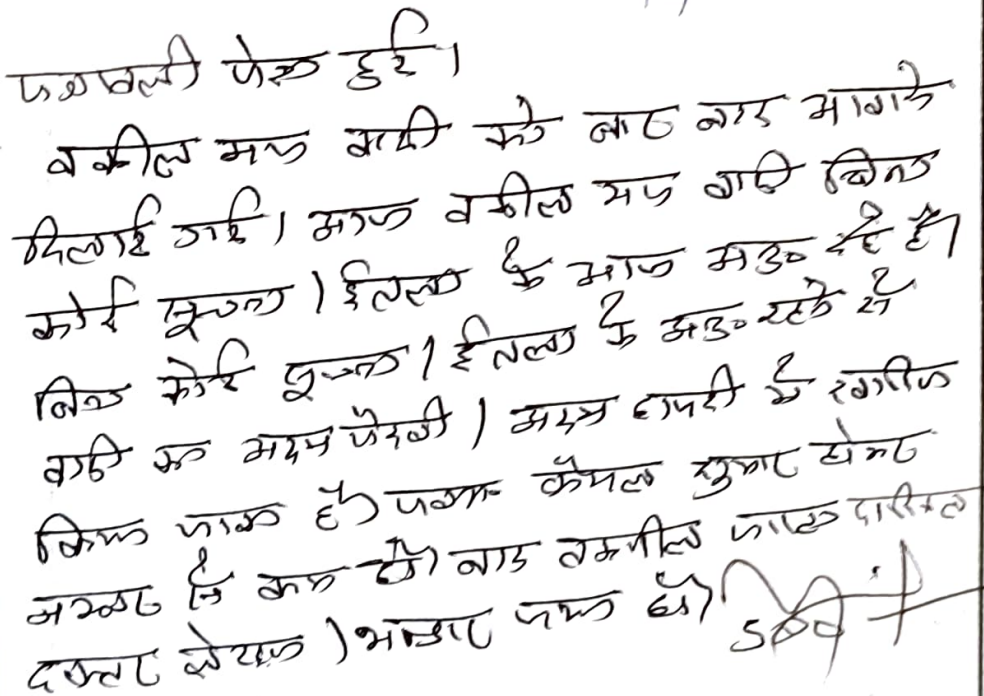 पत्रावली पेश हुई।
वकील मय वादी को बार बार आवाजे
दिलाई गई। आज वकील मय वादी बिना
कोई सूचना / ईत्तला के आज अनु० रहे है।
बिना कोई सूचना / ईत्तला के अनु० रहने से
वादी का अदम पैरवी / अदम हाजरी मे खारिज
किया जाता है। पत्रा० फैसल शुमार होकर
नम्बर से कम हो। बाद तकमील जाप्ता दाखिल
दफ्तर होवे।